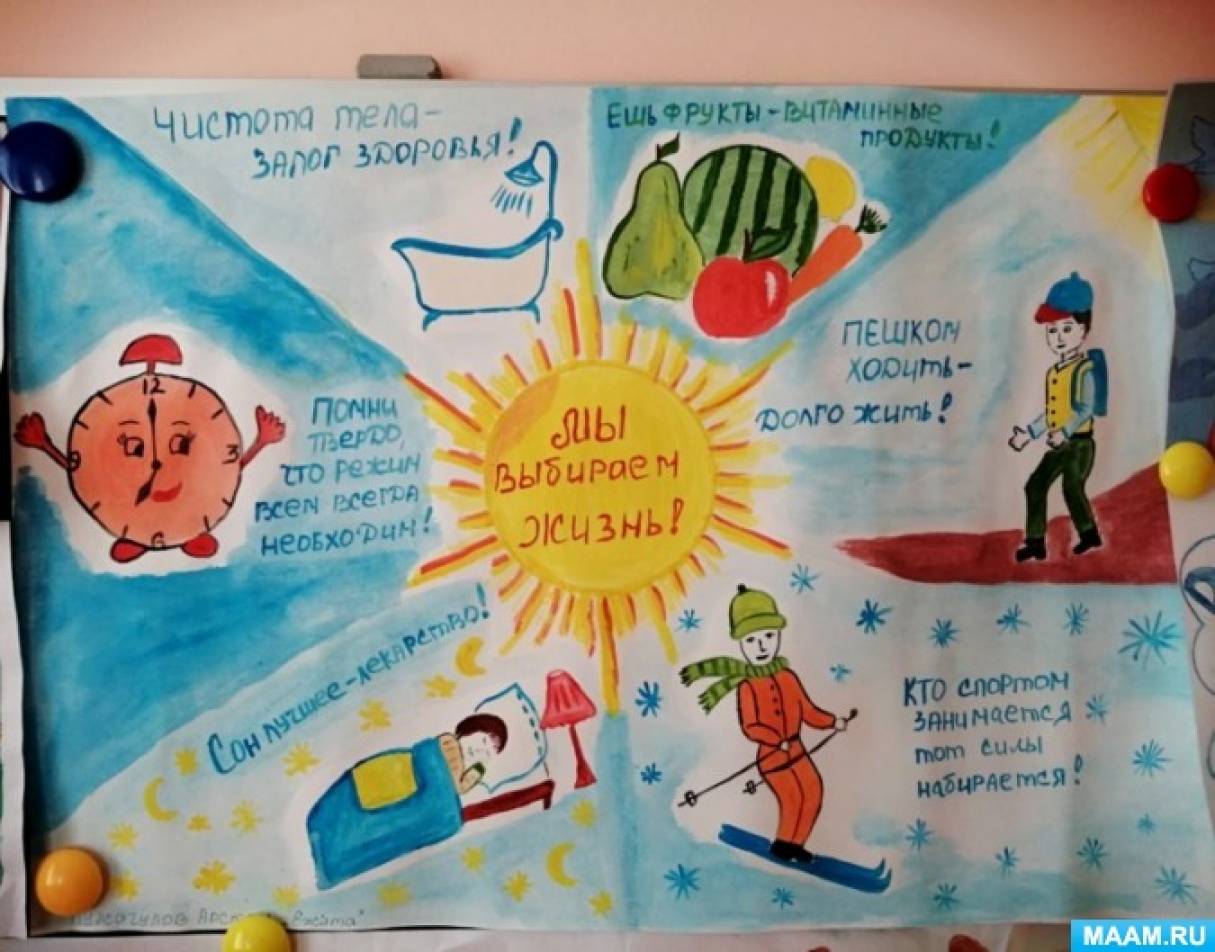 Чистота тела –
ЗАЛОГ ЗДОРОВЬЯ!
ЕШЬ ФРУКТЫ – ВИТАМИННЫЕ
ПРОДУКТЫ!
12
3
6
9
ПОМНИ
ТВЕРДО,
ЧТО РЕЖИМ
ВСЕМ ВСЕГДА
НЕОБХОДИМ!
МЫ
ВЫБИРАЕМ
ЖИЗНЬ!
ПЕШКОМ
ХОДИТЬ –
ДОЛГО ЖИТЬ!
СОН ЛУЧШЕЕ – ЛЕКАРСТВО!
КТО СПОРТОМ
ЗАНИМАЕТСЯ
ТОТ СИЛЫ
НАБИРАЕТСЯ!
MAAM.RU